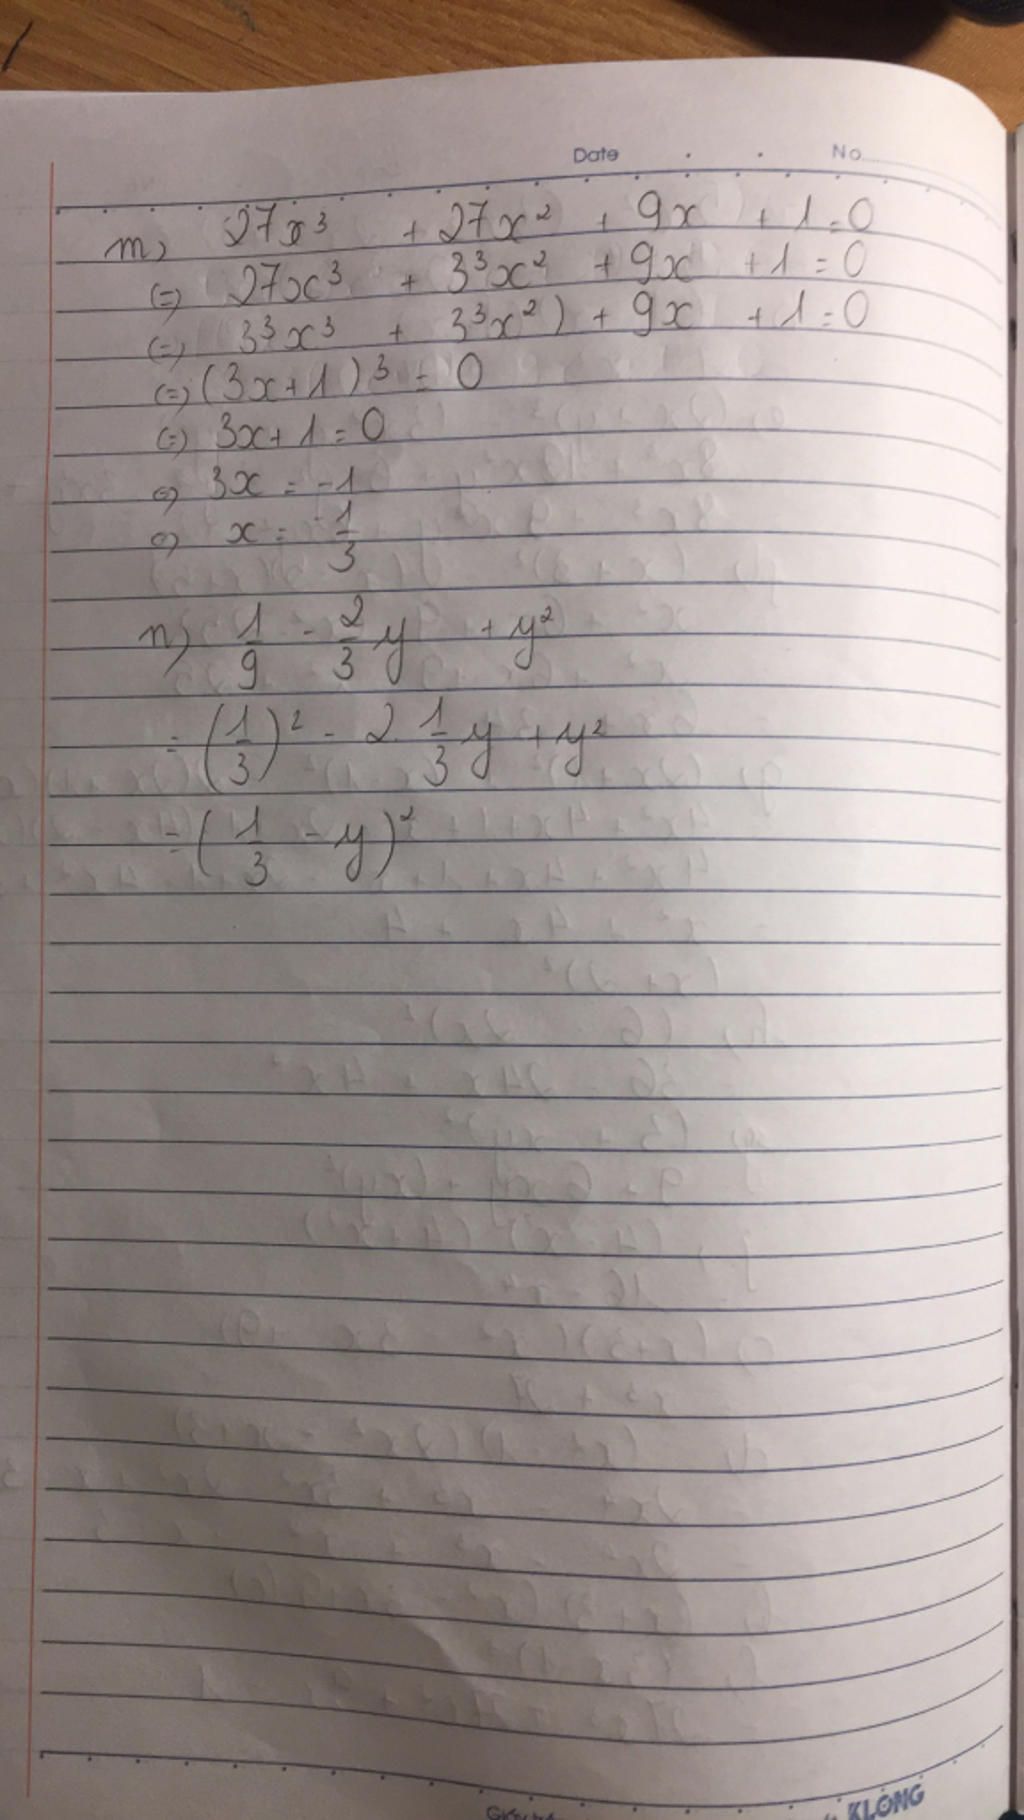 Date . . No
m, 27x³ + 27x² + 9x + 1 = 0
(=) 27x³ + 3³x² + 9x + 1 = 0
(=) 3³x³ + 3³x²) + 9x + 1 = 0
(=) (3x+1)³ = 0
(=) 3x+1 = 0
(=) 3x = -1
(=) x = -1/3
n) 1/9 - 2/3 y + y²
= (1/3)² - 2. 1/3 y + y²
= (1/3 - y)²
KLONG